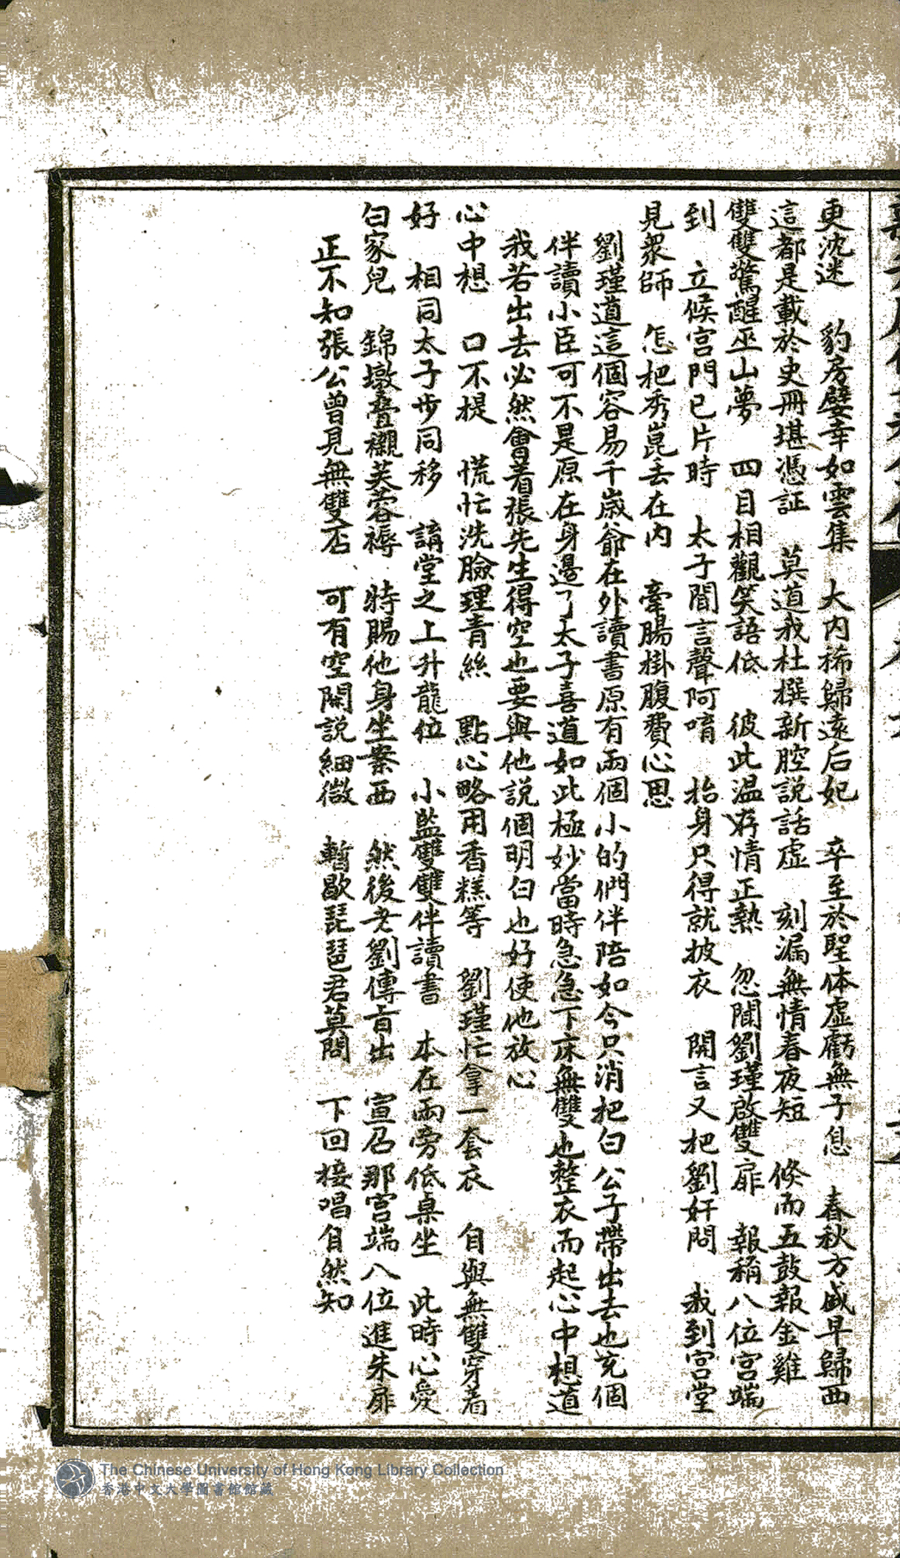 更沈迷　豹房嬖幸如雲集　大内稀歸遠后妃　卒至於聖体虛虧無子息　春秋方盛早歸西
這都是載於史冊堪憑証　莫道我杜撰新腔說話虛　刻漏無情春夜短　倏而五鼓報金雞
雙雙驚醒巫山夢　四目相觀笑語低　彼此温存情正熱　忽聞劉瑾啟雙扉　報稱八位宮端
到　立候宮門已片時　太子聞言聲阿唷　抬身只得就披衣　開言又把劉奸問　我到宮堂
見衆師　怎把秀崑丟在内　牽腸掛腹費心思
劉瑾道這個容易千歲爺在外讀書原有兩個小的們伴陪如今只消把白公子帶出去也充個
伴讀小臣可不是原在身邊了太子喜道如此極妙當時急急下床無雙也整衣而起心中想道
我若出去必然會着張先生得空也要與他說個明白也好使他放心
心中想　口不提　慌忙洗臉理青絲　點心略用香糕等　劉瑾忙拿一套衣　自與無雙穿着
好　相同太子步同移　講堂之上升龍位　小監雙雙伴讀書　本在兩旁低桌坐　此時心愛
白家兒　錦墩疊襯芙蓉褥　特賜他身坐案西　然後老劉傳旨出　宣召那宮端八位進朱扉
正不知張公曾見無雙否　可有空閑說細微　暫歇琵琶君莫問　下回接唱自然知
The Chinese University of Hong Kong Library Collection
香港中文大學圖書館館藏